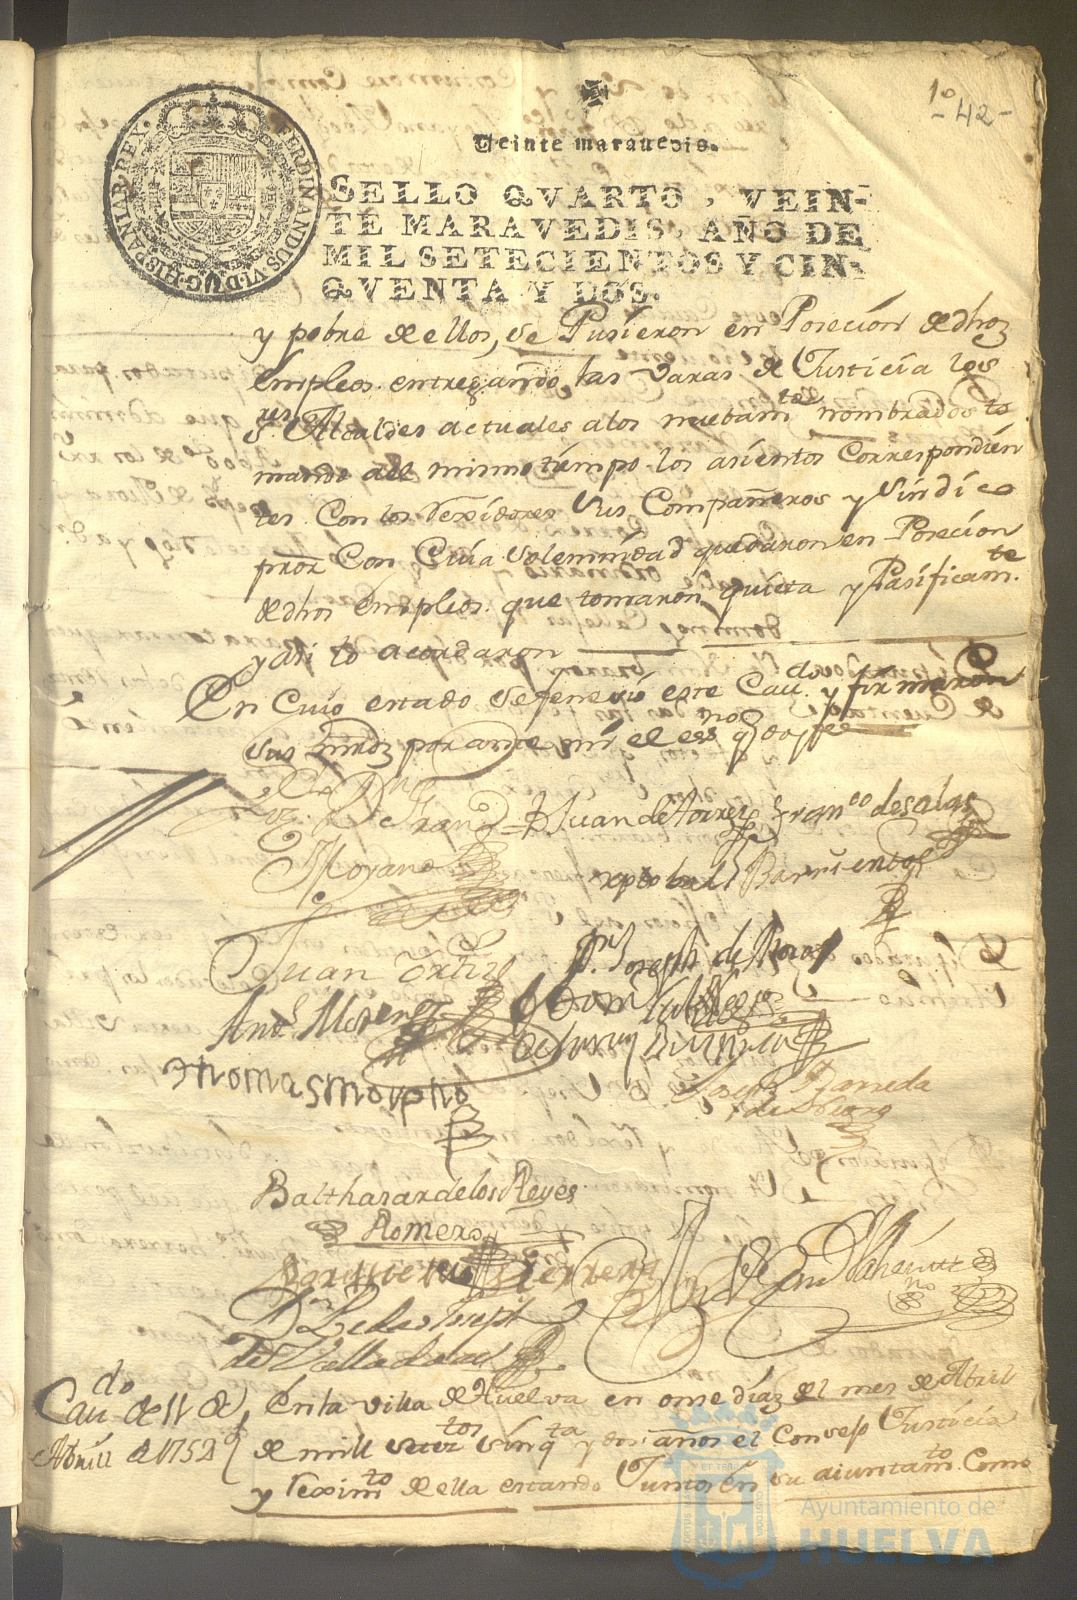 1º
-42-
Veinte maravedis.
SELLO QVARTO, VEIN-
TE MARAVEDIS, AÑO DE
MIL SETECIENTOS Y CIN-
QVENTA Y DOS.
FERDINANDUS VI D G HISPANIAR REX
y pobre de ellos, se Pusieron en Posecion de dhoz
empleos entregando las varas de Justicia los
sres Alcaldes actuales a los nuebamte nombrados to
mando al mismo tiempo los asientos Correspondien
tes Con los Rexidores sus Compañeros y Sindico
pror Con Cuia solemnidad quedaron en Posecion
de dhos empleos que tomaron quieta y Pasificamte
y asi lo acordaron
En Cuio estado se fenecio este Caudo y firmaron
sus mrdz por ante mi el essno q doy fee
Franco
Moyano
Juan de Torres
Franco de Salas
xptobal Barrientos
Juan Ortiz
Dn Joseph de
Anto Moreno
Thomas Morpho
Joseph Raneda
Balthasar de los Reyes
Romero
Herrera
Joseph
de Valladolid
Caudo de 11 de
Abrill de 1752
En la villa de Huelva en onse diaz del mes de Abril
de mill setectos sinqta y dos años el Consejo Justicia
y Reximto de ella estando Juntos en su aiuntamto Como
Ayuntamiento de
HUELVA